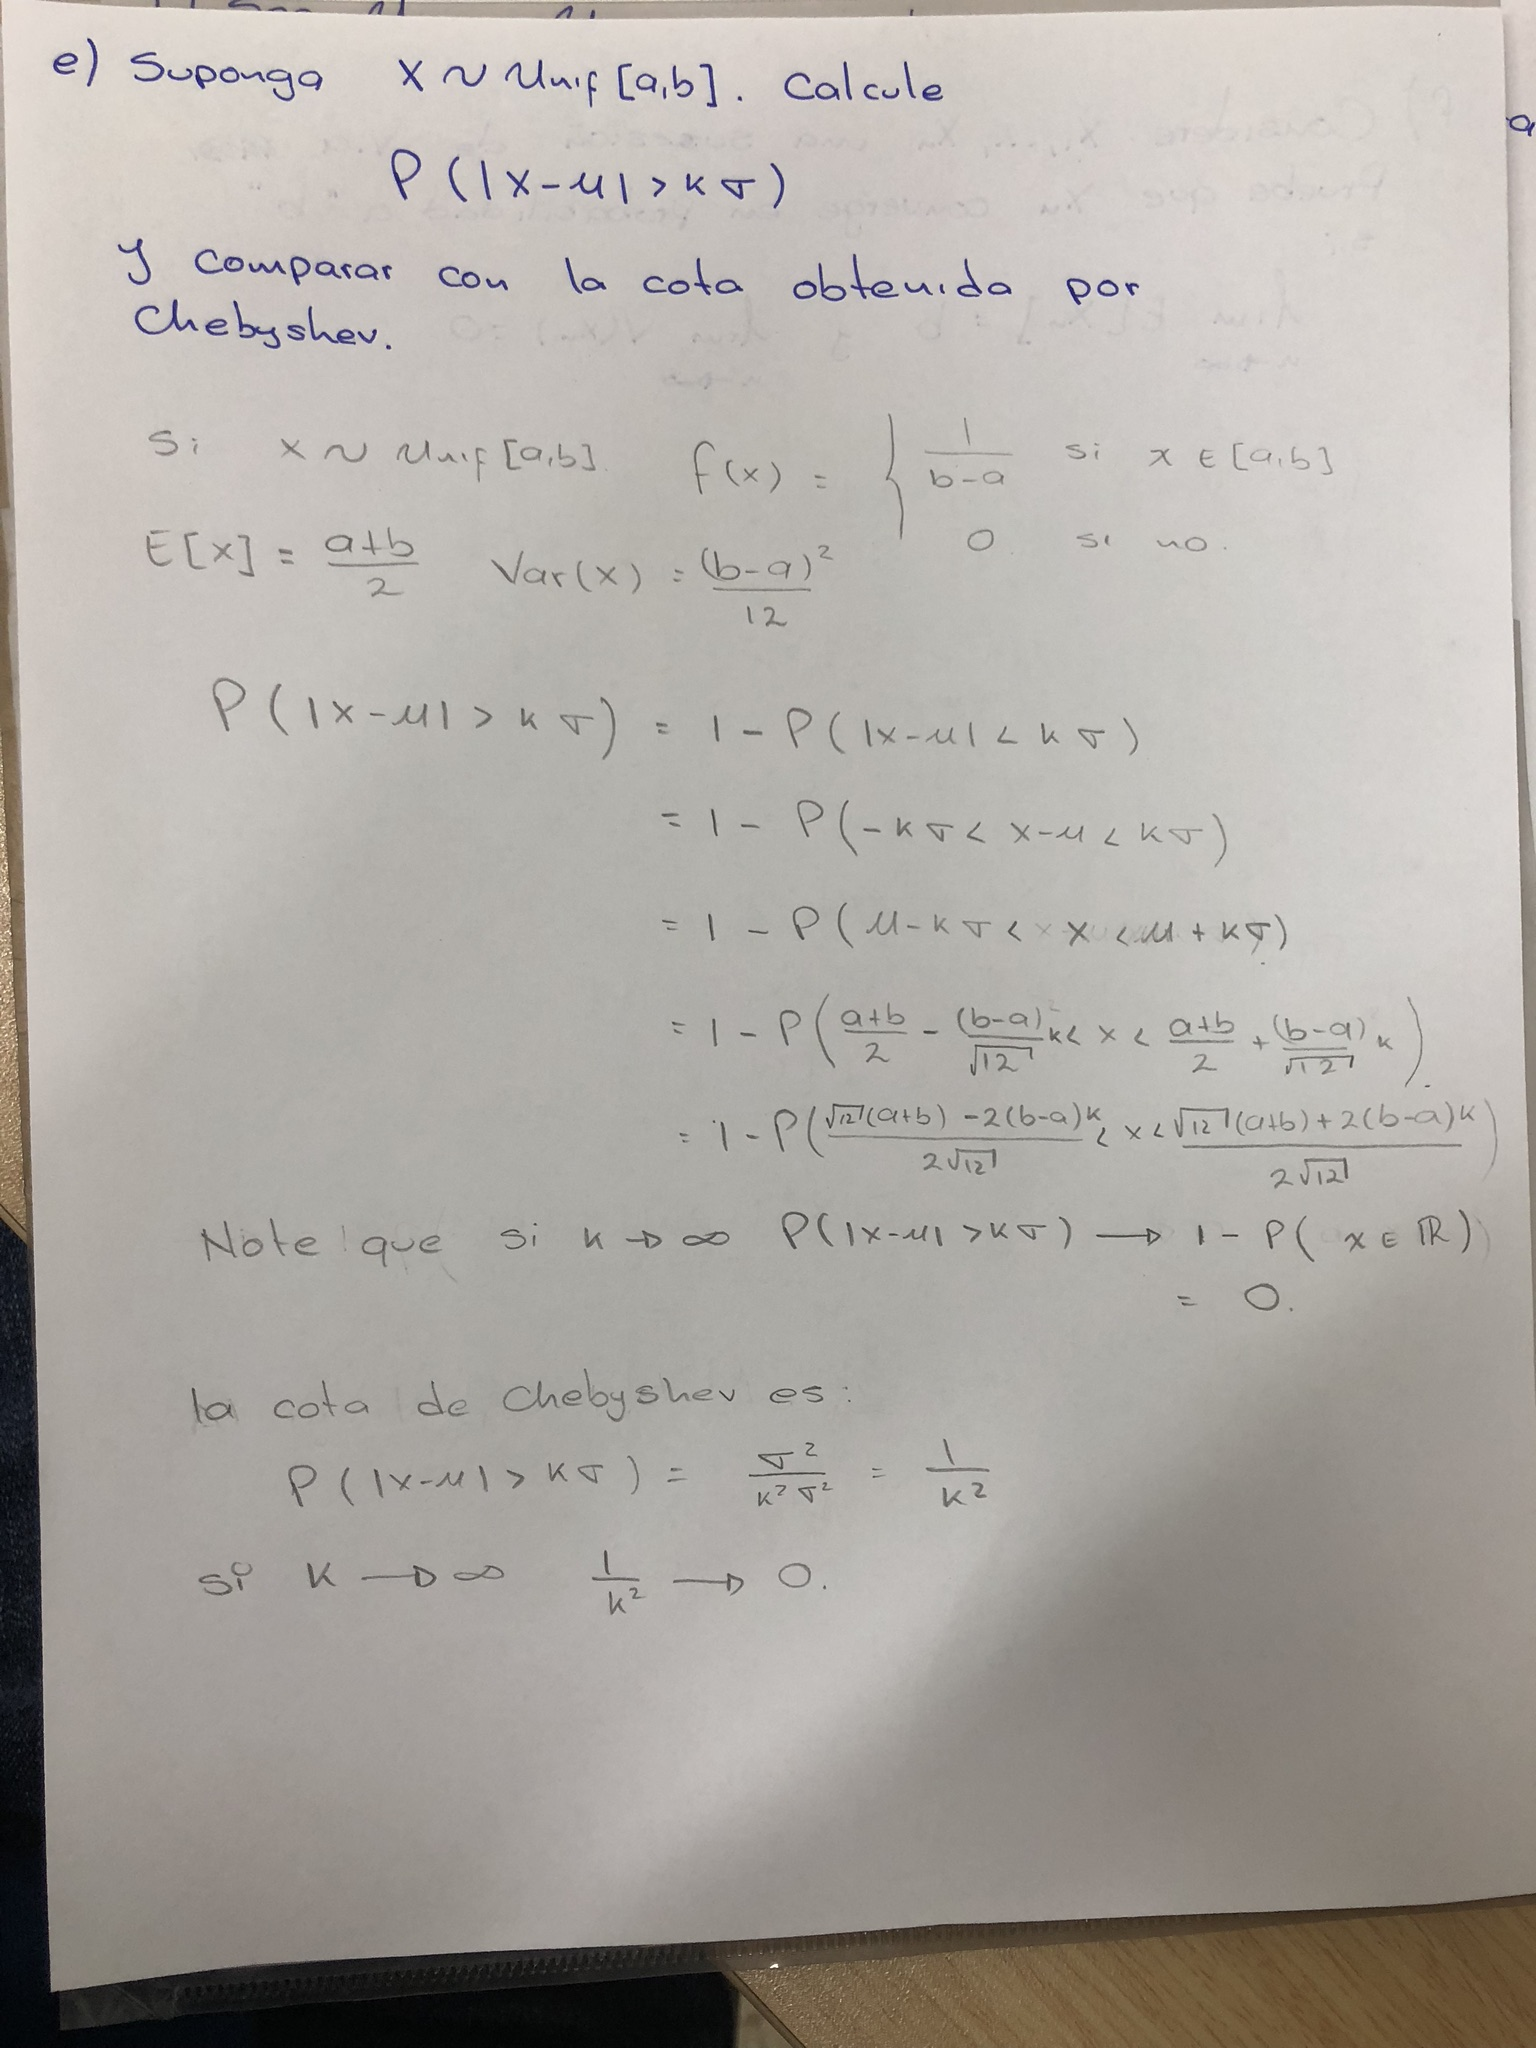 e) Suponga X ~ Unif [a,b]. Calcule
P (|X-μ| > kσ)
y comparar con la cota obtenida por
Chebyshev.
Si X ~ Unif [a,b]. f(x) = { 1/(b-a) si x ∈ [a,b]
0 si no.
E[X] = (a+b)/2 Var(X) = (b-a)²/12
P(|X-μ| > kσ) = 1 - P(|X-μ| < kσ)
= 1 - P(-kσ < X-μ < kσ)
= 1 - P(μ-kσ < X < μ+kσ)
= 1 - P((a+b)/2 - (b-a)/√12 k < X < (a+b)/2 + (b-a)/√12 k).
= 1 - P((√12(a+b) - 2(b-a)k)/2√12 < X < (√12(a+b) + 2(b-a)k)/2√12)
Note que si k → ∞ P(|X-μ| > kσ) → 1 - P( x ∈ ℝ)
= 0.
la cota de Chebyshev es:
P(|X-μ| > kσ) = σ²/k²σ² = 1/k²
si k → ∞ 1/k² → 0.